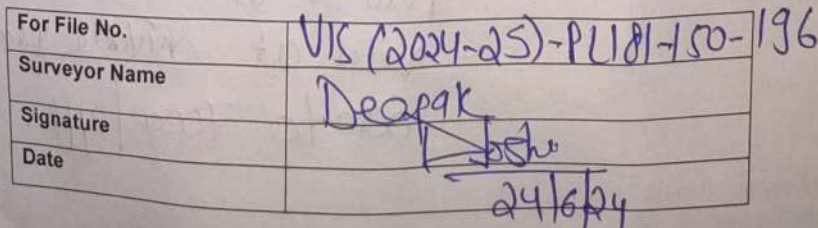 For File No. VIS (2024-25)-PL181-150-196
Surveyor Name Deapak
Signature Joshi
Date 24/6/24